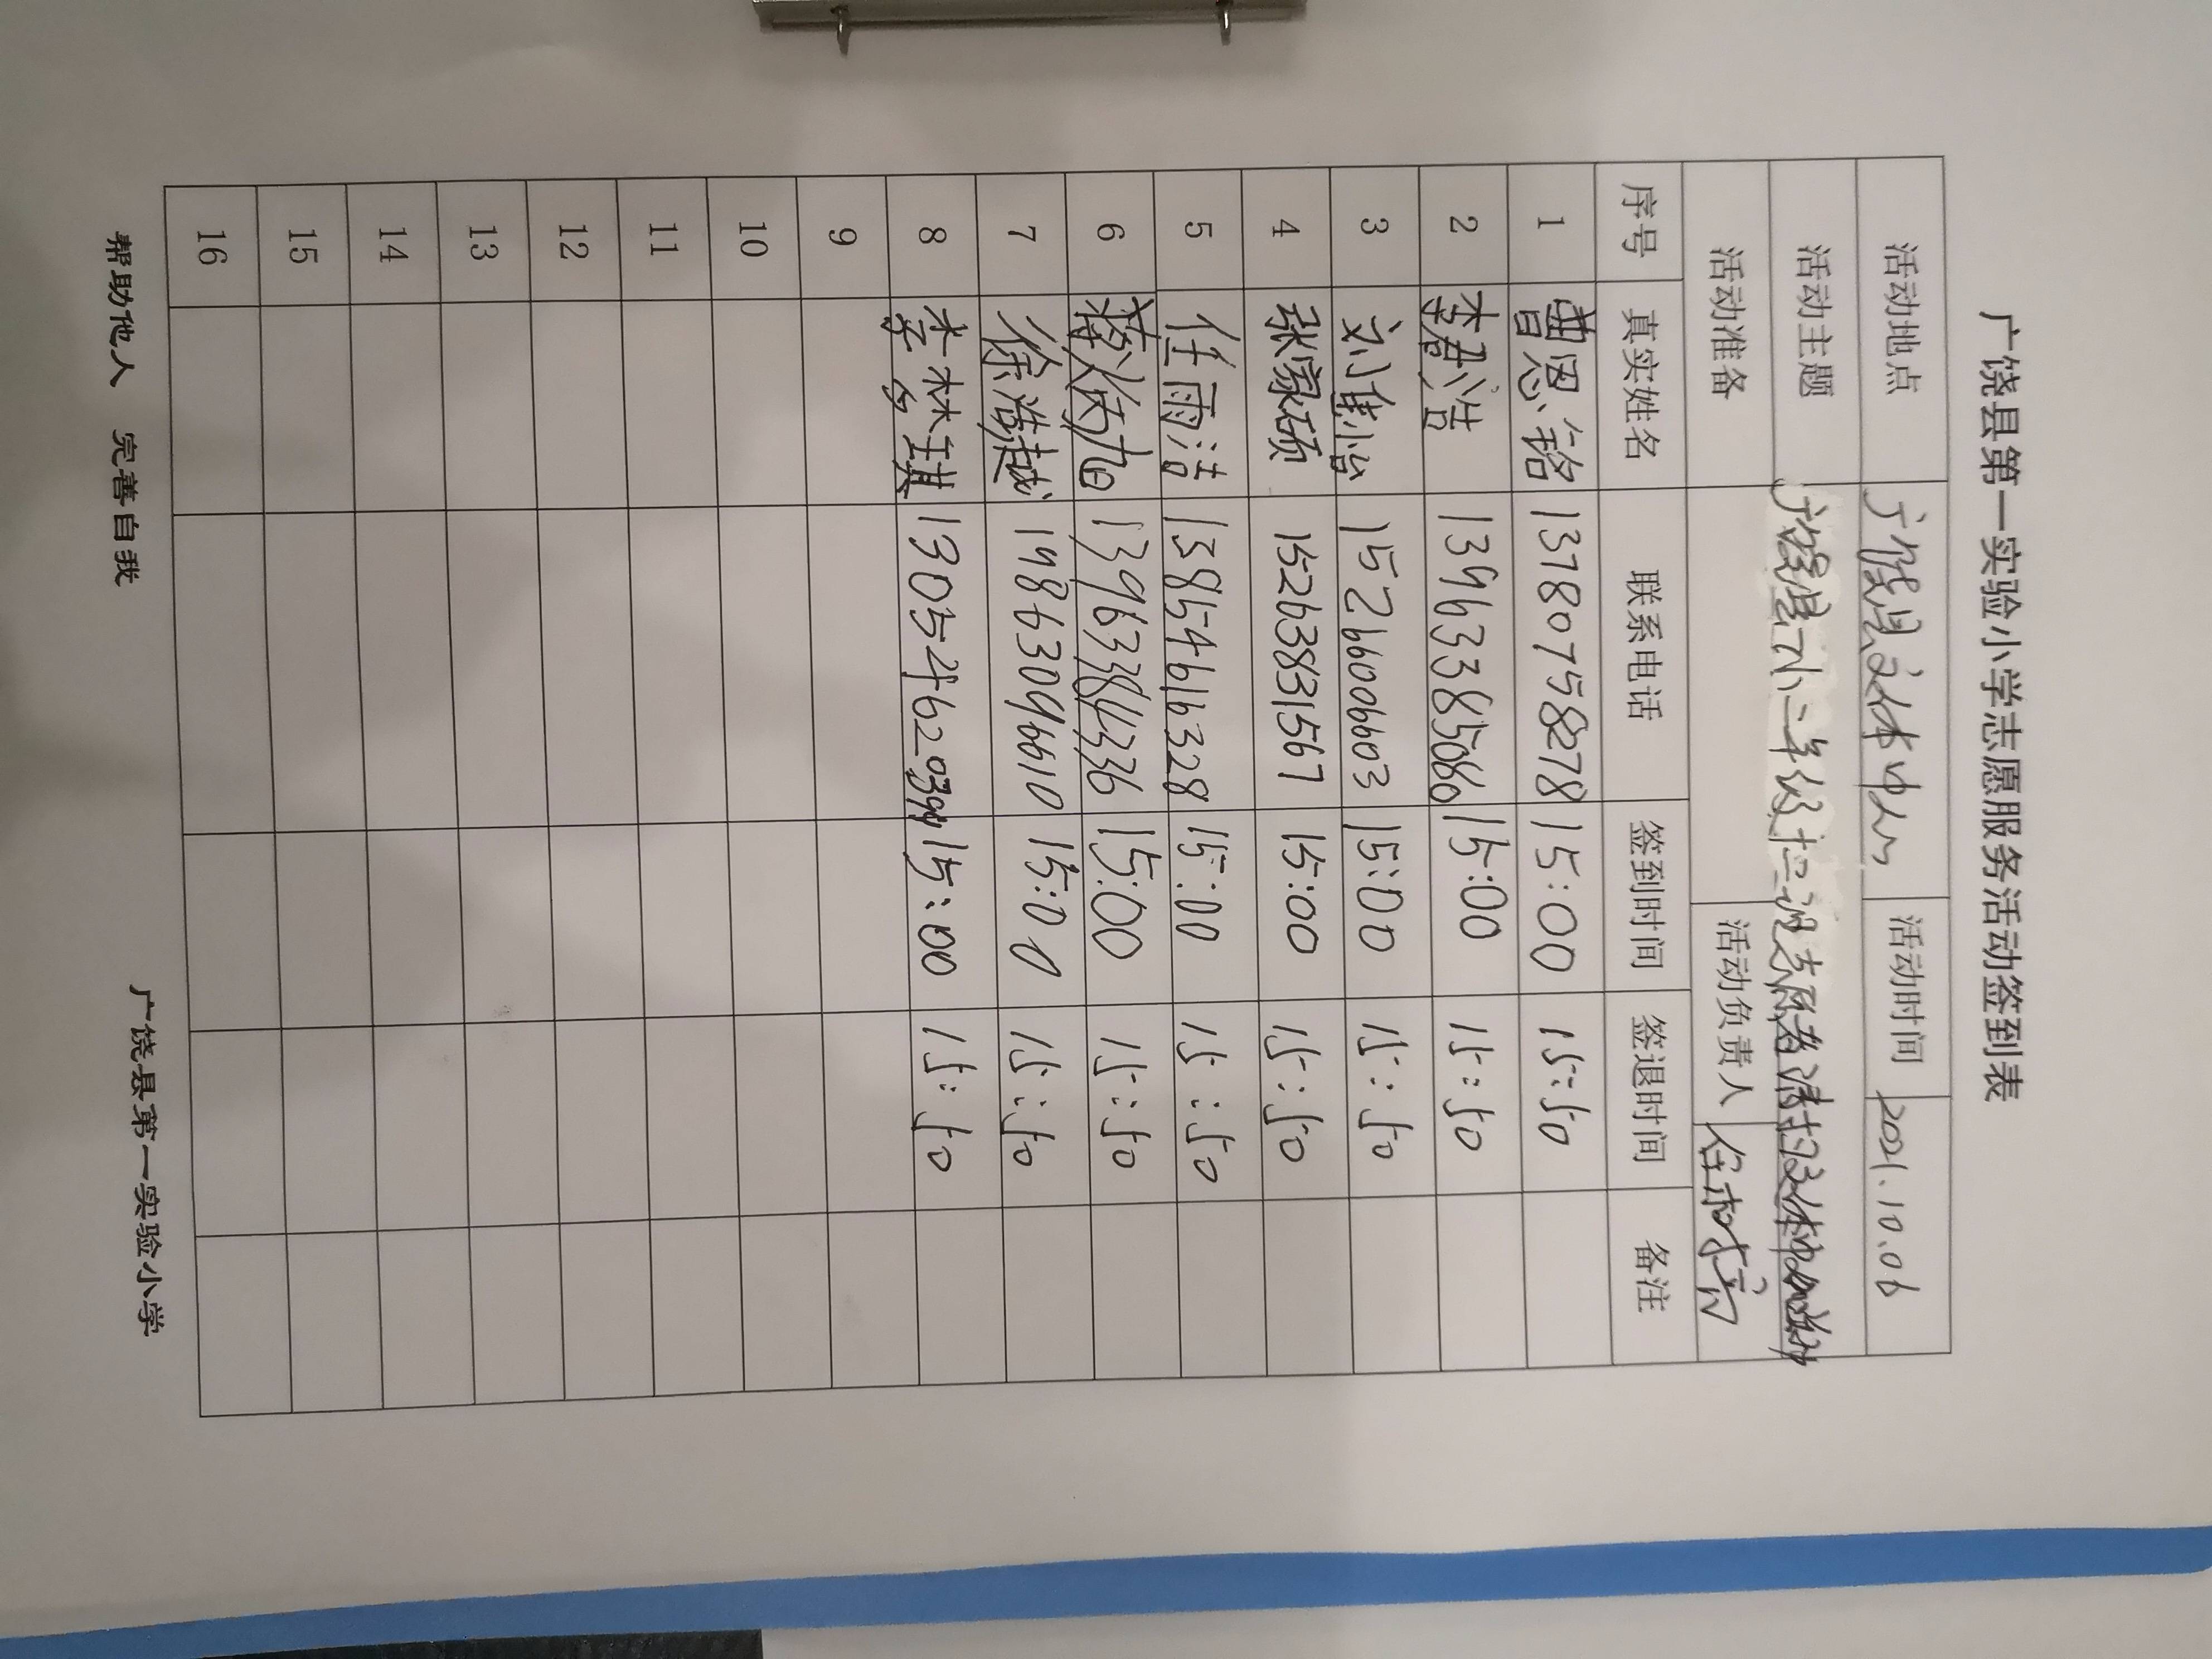 广饶县第一实验小学志愿服务活动签到表
活动地点 广饶县文体中心 活动时间 2021.10.06
活动主题 志愿者清扫文体中心
活动准备 活动负责人
序号 真实姓名 联系电话 签到时间 签退时间 备注
1 曹恩铭 13780758278 15:00 15:50
2 李君浩 13963385060 15:00 15:50
3 刘佳怡 15266006603 15:00 15:50
4 张家硕 15263831567 15:00 15:50
5 任雨洁 13854616328 15:00 15:50
6 13963384336 15:00 15:50
7 徐浩越 19863096610 15:00 15:50
8 李林琪 15:00 15:50
9
10
11
12
13
14
15
16
帮助他人 完善自我 广饶县第一实验小学